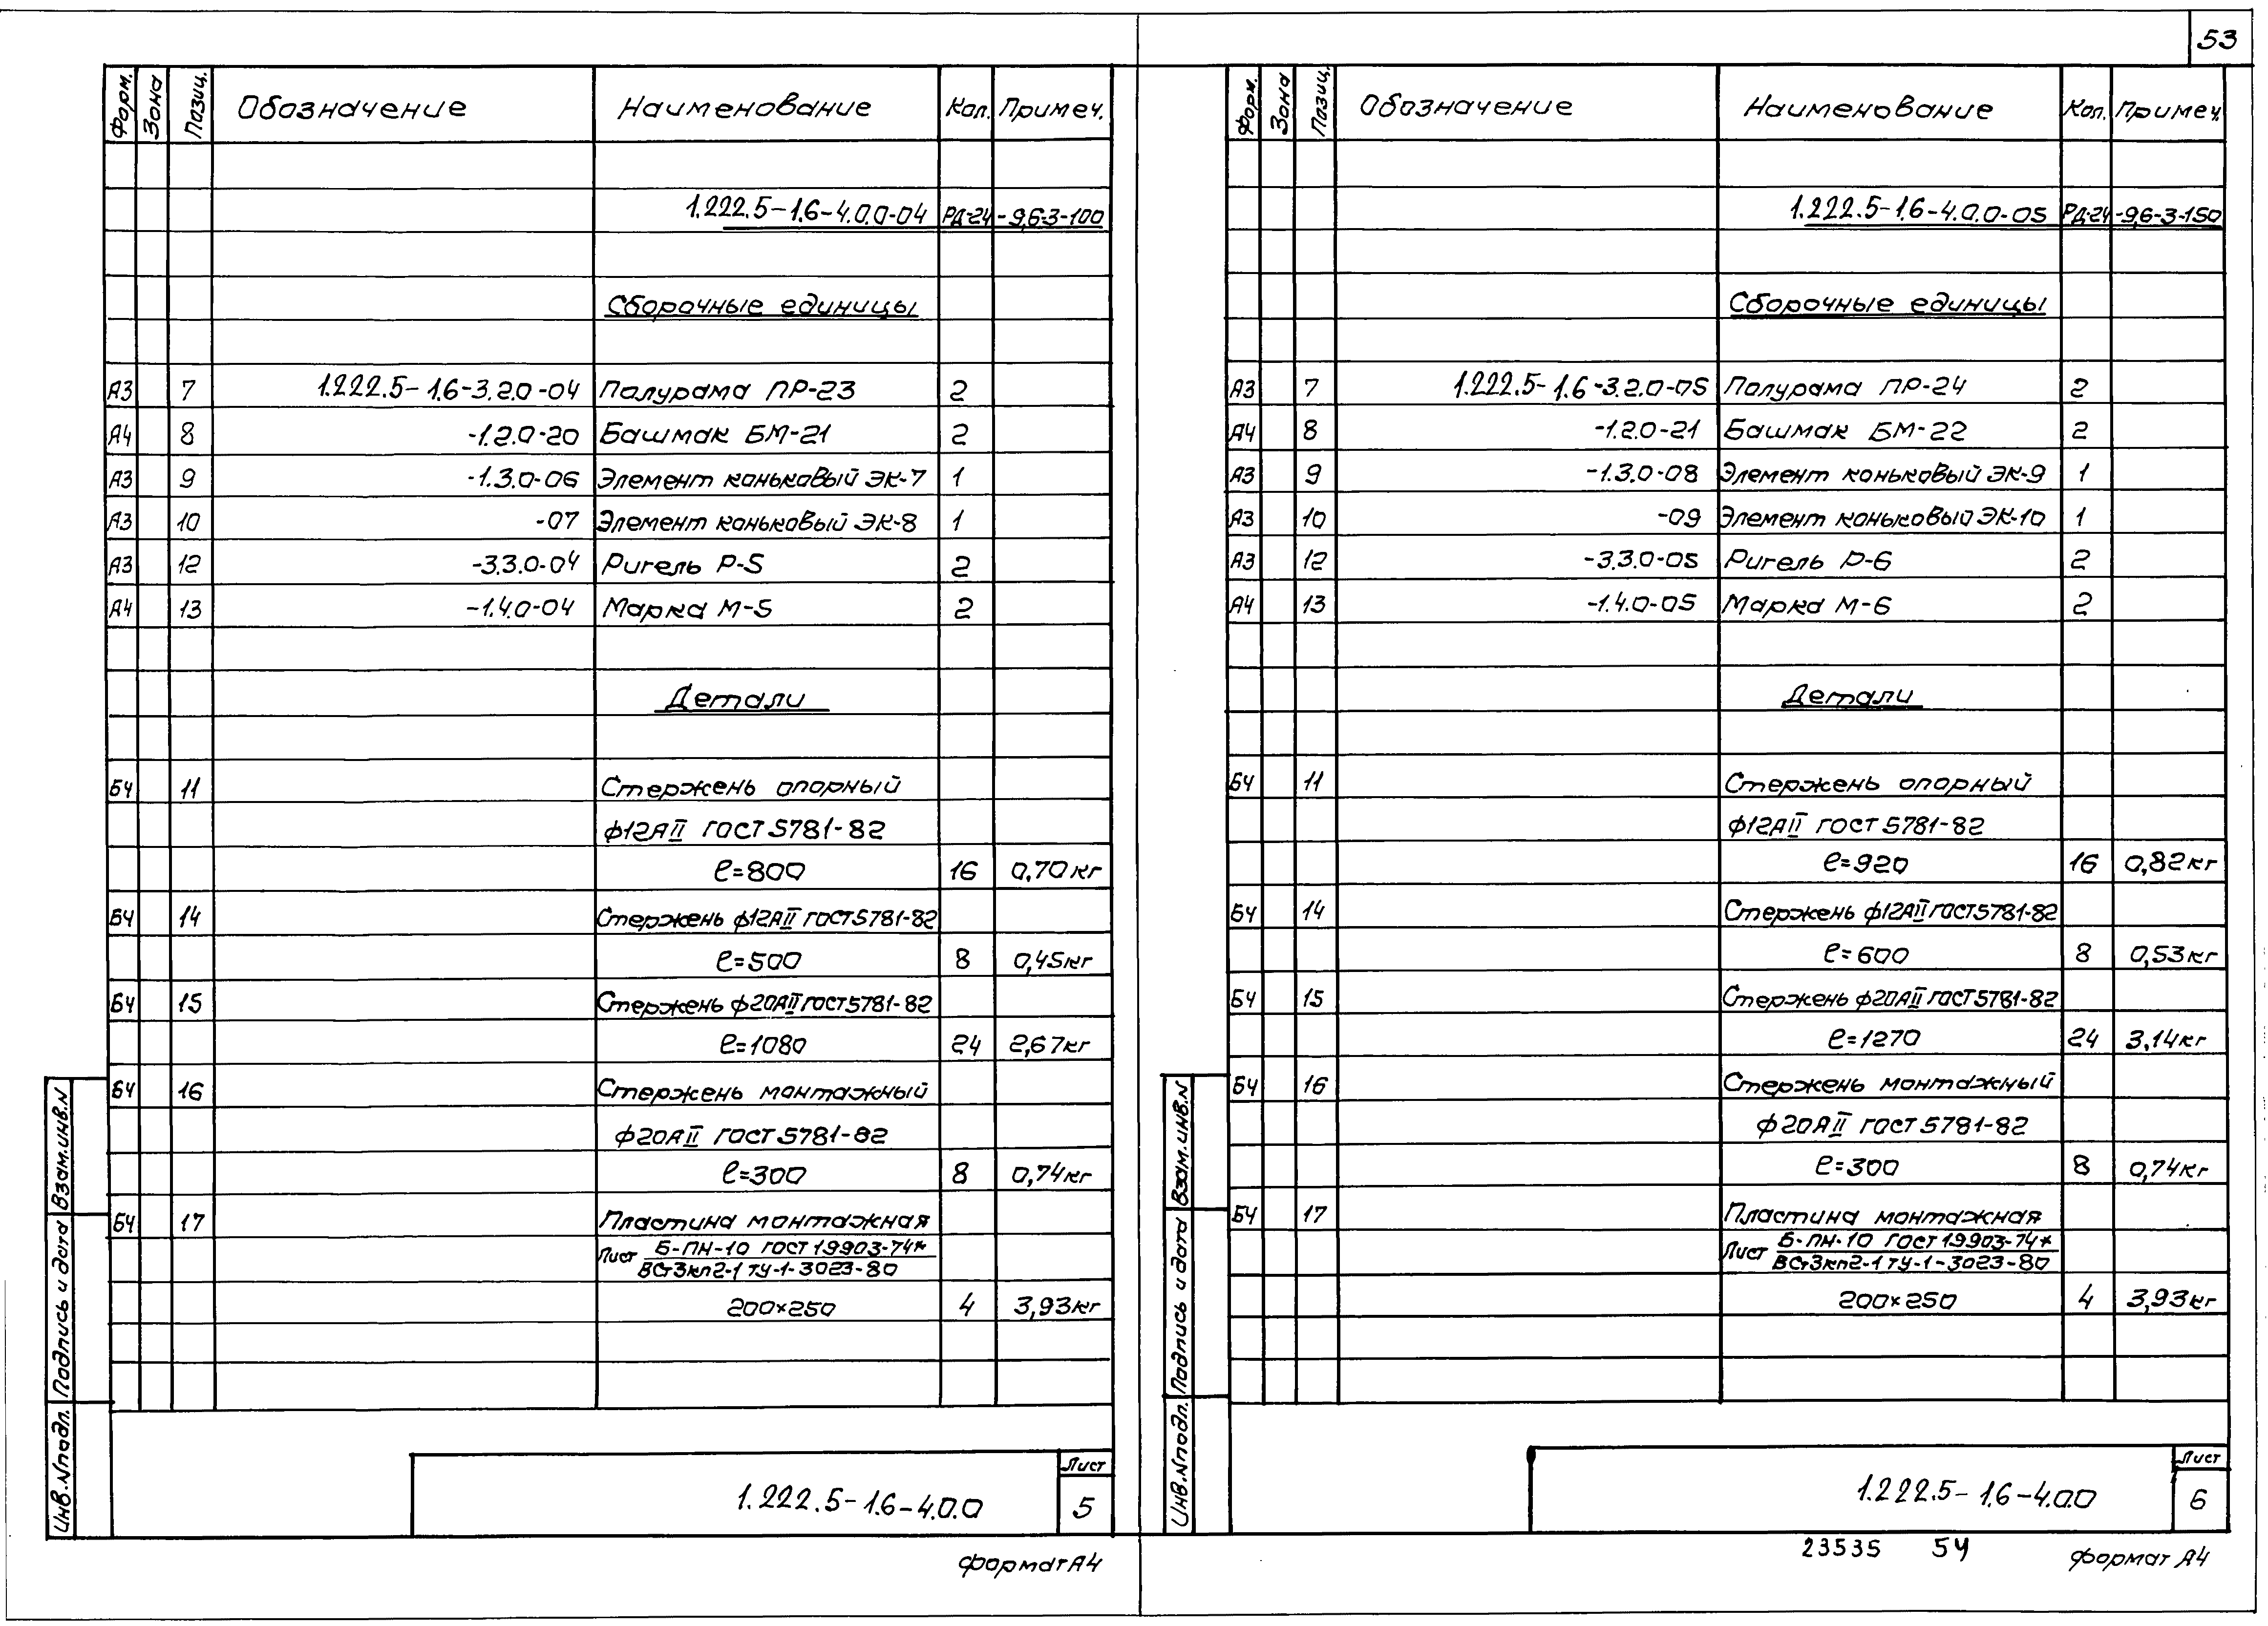 53
Форм. Зона Позиц. Обозначение Наименование Кол. Примеч.
1.222.5-1.6-4.0.0-04 РД-24-9,6-3-100
Сборочные единицы
А3 7 1.222.5-1.6-3.2.0-04 Полурама ПР-23 2
А4 8 -1.2.0-20 Башмак БМ-21 2
А3 9 -1.3.0-06 Элемент коньковый ЭК-7 1
А3 10 -07 Элемент коньковый ЭК-8 1
А3 12 -3.3.0-04 Ригель Р-5 2
А4 13 -1.4.0-04 Марка М-5 2
Детали
БЧ 11 Стержень опорный
ф12АII ГОСТ 5781-82
ℓ=800 16 0,70кг
БЧ 14 Стержень ф12АII ГОСТ 5781-82
ℓ=500 8 0,45кг
БЧ 15 Стержень ф20АII ГОСТ 5781-82
ℓ=1080 24 2,67кг
БЧ 16 Стержень монтажный
ф20АII ГОСТ 5781-82
ℓ=300 8 0,74кг
БЧ 17 Пластина монтажная
Лист Б-ПН-10 ГОСТ 19903-74*
ВСт3кп2-1 ТУ-1-3023-80
200×250 4 3,93кг
Взам.инв.N
Подпись и дата
Инв.Nподл.
1.222.5-1.6-4.0.0
Лист
5
формат А4
Форм. Зона Позиц. Обозначение Наименование Кол. Примеч.
1.222.5-1.6-4.0.0-05 РД-24-9,6-3-150
Сборочные единицы
А3 7 1.222.5-1.6-3.2.0-05 Полурама ПР-24 2
А4 8 -1.2.0-21 Башмак БМ-22 2
А3 9 -1.3.0-08 Элемент коньковый ЭК-9 1
А3 10 -09 Элемент коньковый ЭК-10 1
А3 12 -3.3.0-05 Ригель Р-6 2
А4 13 -1.4.0-05 Марка М-6 2
Детали
БЧ 11 Стержень опорный
ф12АII ГОСТ 5781-82
ℓ=920 16 0,82кг
БЧ 14 Стержень ф12АII ГОСТ 5781-82
ℓ=600 8 0,53кг
БЧ 15 Стержень ф20АII ГОСТ 5781-82
ℓ=1270 24 3,14кг
БЧ 16 Стержень монтажный
ф20АII ГОСТ 5781-82
ℓ=300 8 0,74кг
БЧ 17 Пластина монтажная
Лист Б-ПН-10 ГОСТ 19903-74*
ВСт3кп2-1 ТУ-1-3023-80
200×250 4 3,93кг
Взам.инв.N
Подпись и дата
Инв.Nподл.
1.222.5-1.6-4.0.0
Лист
6
23535 54
формат А4